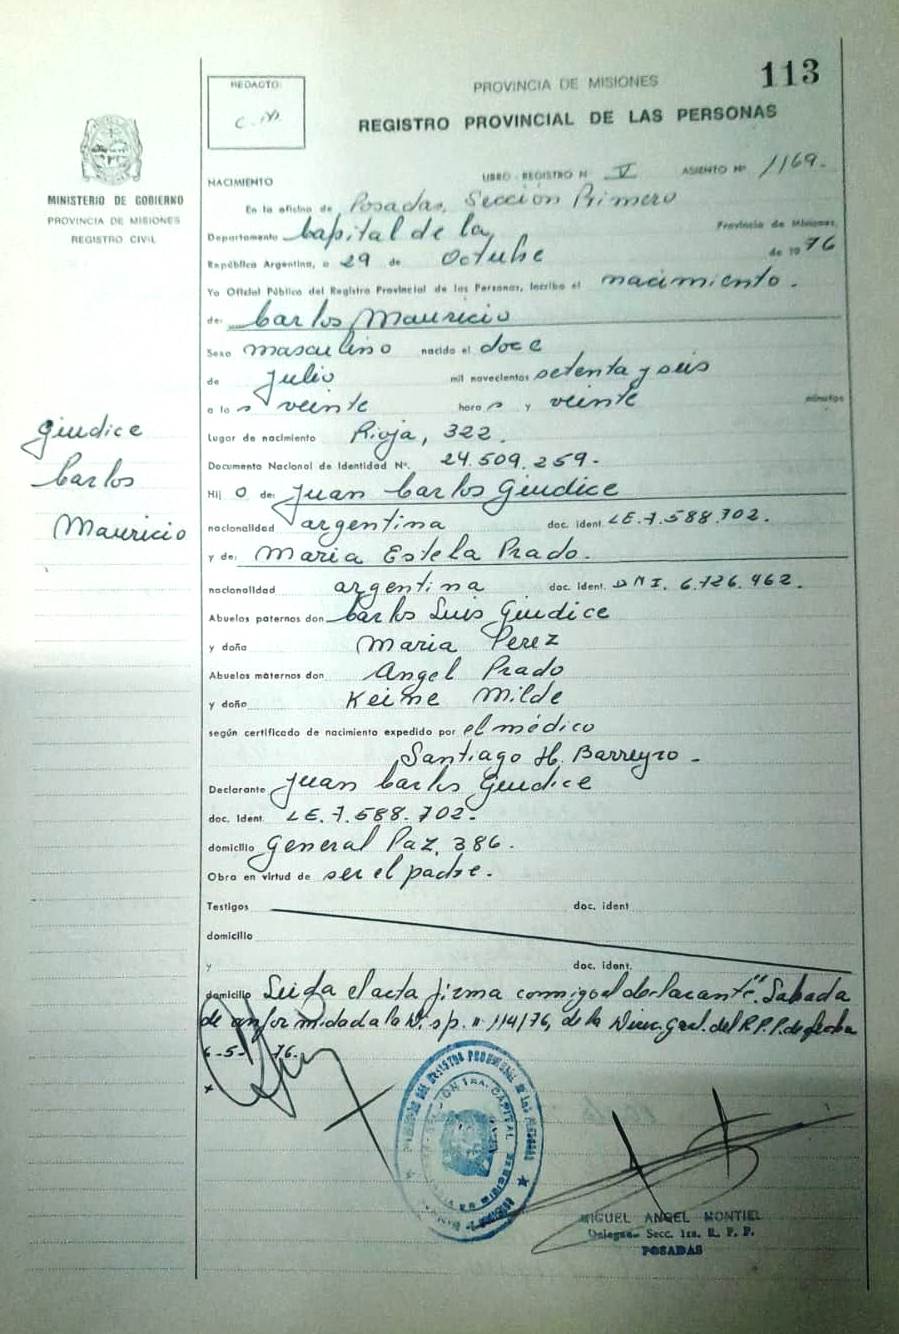 113
REDACTO:
C.M.
PROVINCIA DE MISIONES
REGISTRO PROVINCIAL DE LAS PERSONAS
MINISTERIO DE GOBIERNO
PROVINCIA DE MISIONES
REGISTRO CIVIL
NACIMIENTO LIBRO - REGISTRO N V ASIENTO Nº 1169.
En la oficina de Posadas, Sección Primero
Departamento Capital de la, Provincia de Misiones,
República Argentina, a 29 de Octubre de 1976
Yo Oficial Público del Registro Provincial de las Personas, inscribo el nacimiento.
de: Carlos Mauricio
Sexo masculino nacido el doce
de Julio mil novecientos setenta y seis
a la s veinte hora s y veinte minutos
Lugar de nacimiento Rioja, 322.
Documento Nacional de Identidad Nº. 24.509.259.
Giudice
Carlos
Mauricio
Hij o de: Juan Carlos Giudice
nacionalidad argentina doc. ident. LE.7.588.702.
y de: Maria Estela Prado.
nacionalidad argentina doc. ident. DNI. 6.726.462.
Abuelos paternos don Carlos Luis Giudice
y doña Maria Perez
Abuelos maternos don Angel Prado
y doña Keime Milde
según certificado de nacimiento expedido por el médico
Santiago H. Barreyro.-
Declarante Juan Carlos Giudice
doc. Ident. LE.7.588.702.-
domicilio General Paz, 386.
Obra en virtud de ser el padre.
Testigos doc. ident
domicilio
y doc. ident.
domicilio Leida el acta firma conmigo el declarante". Labada
de conformidad a la Disp. nº 114/76, de la Direc. Gral. del R.P.P. de fecha
6-5-76.
MIGUEL ANGEL MONTIEL
Delegado Secc. 1ra. R. P. P.
POSADAS